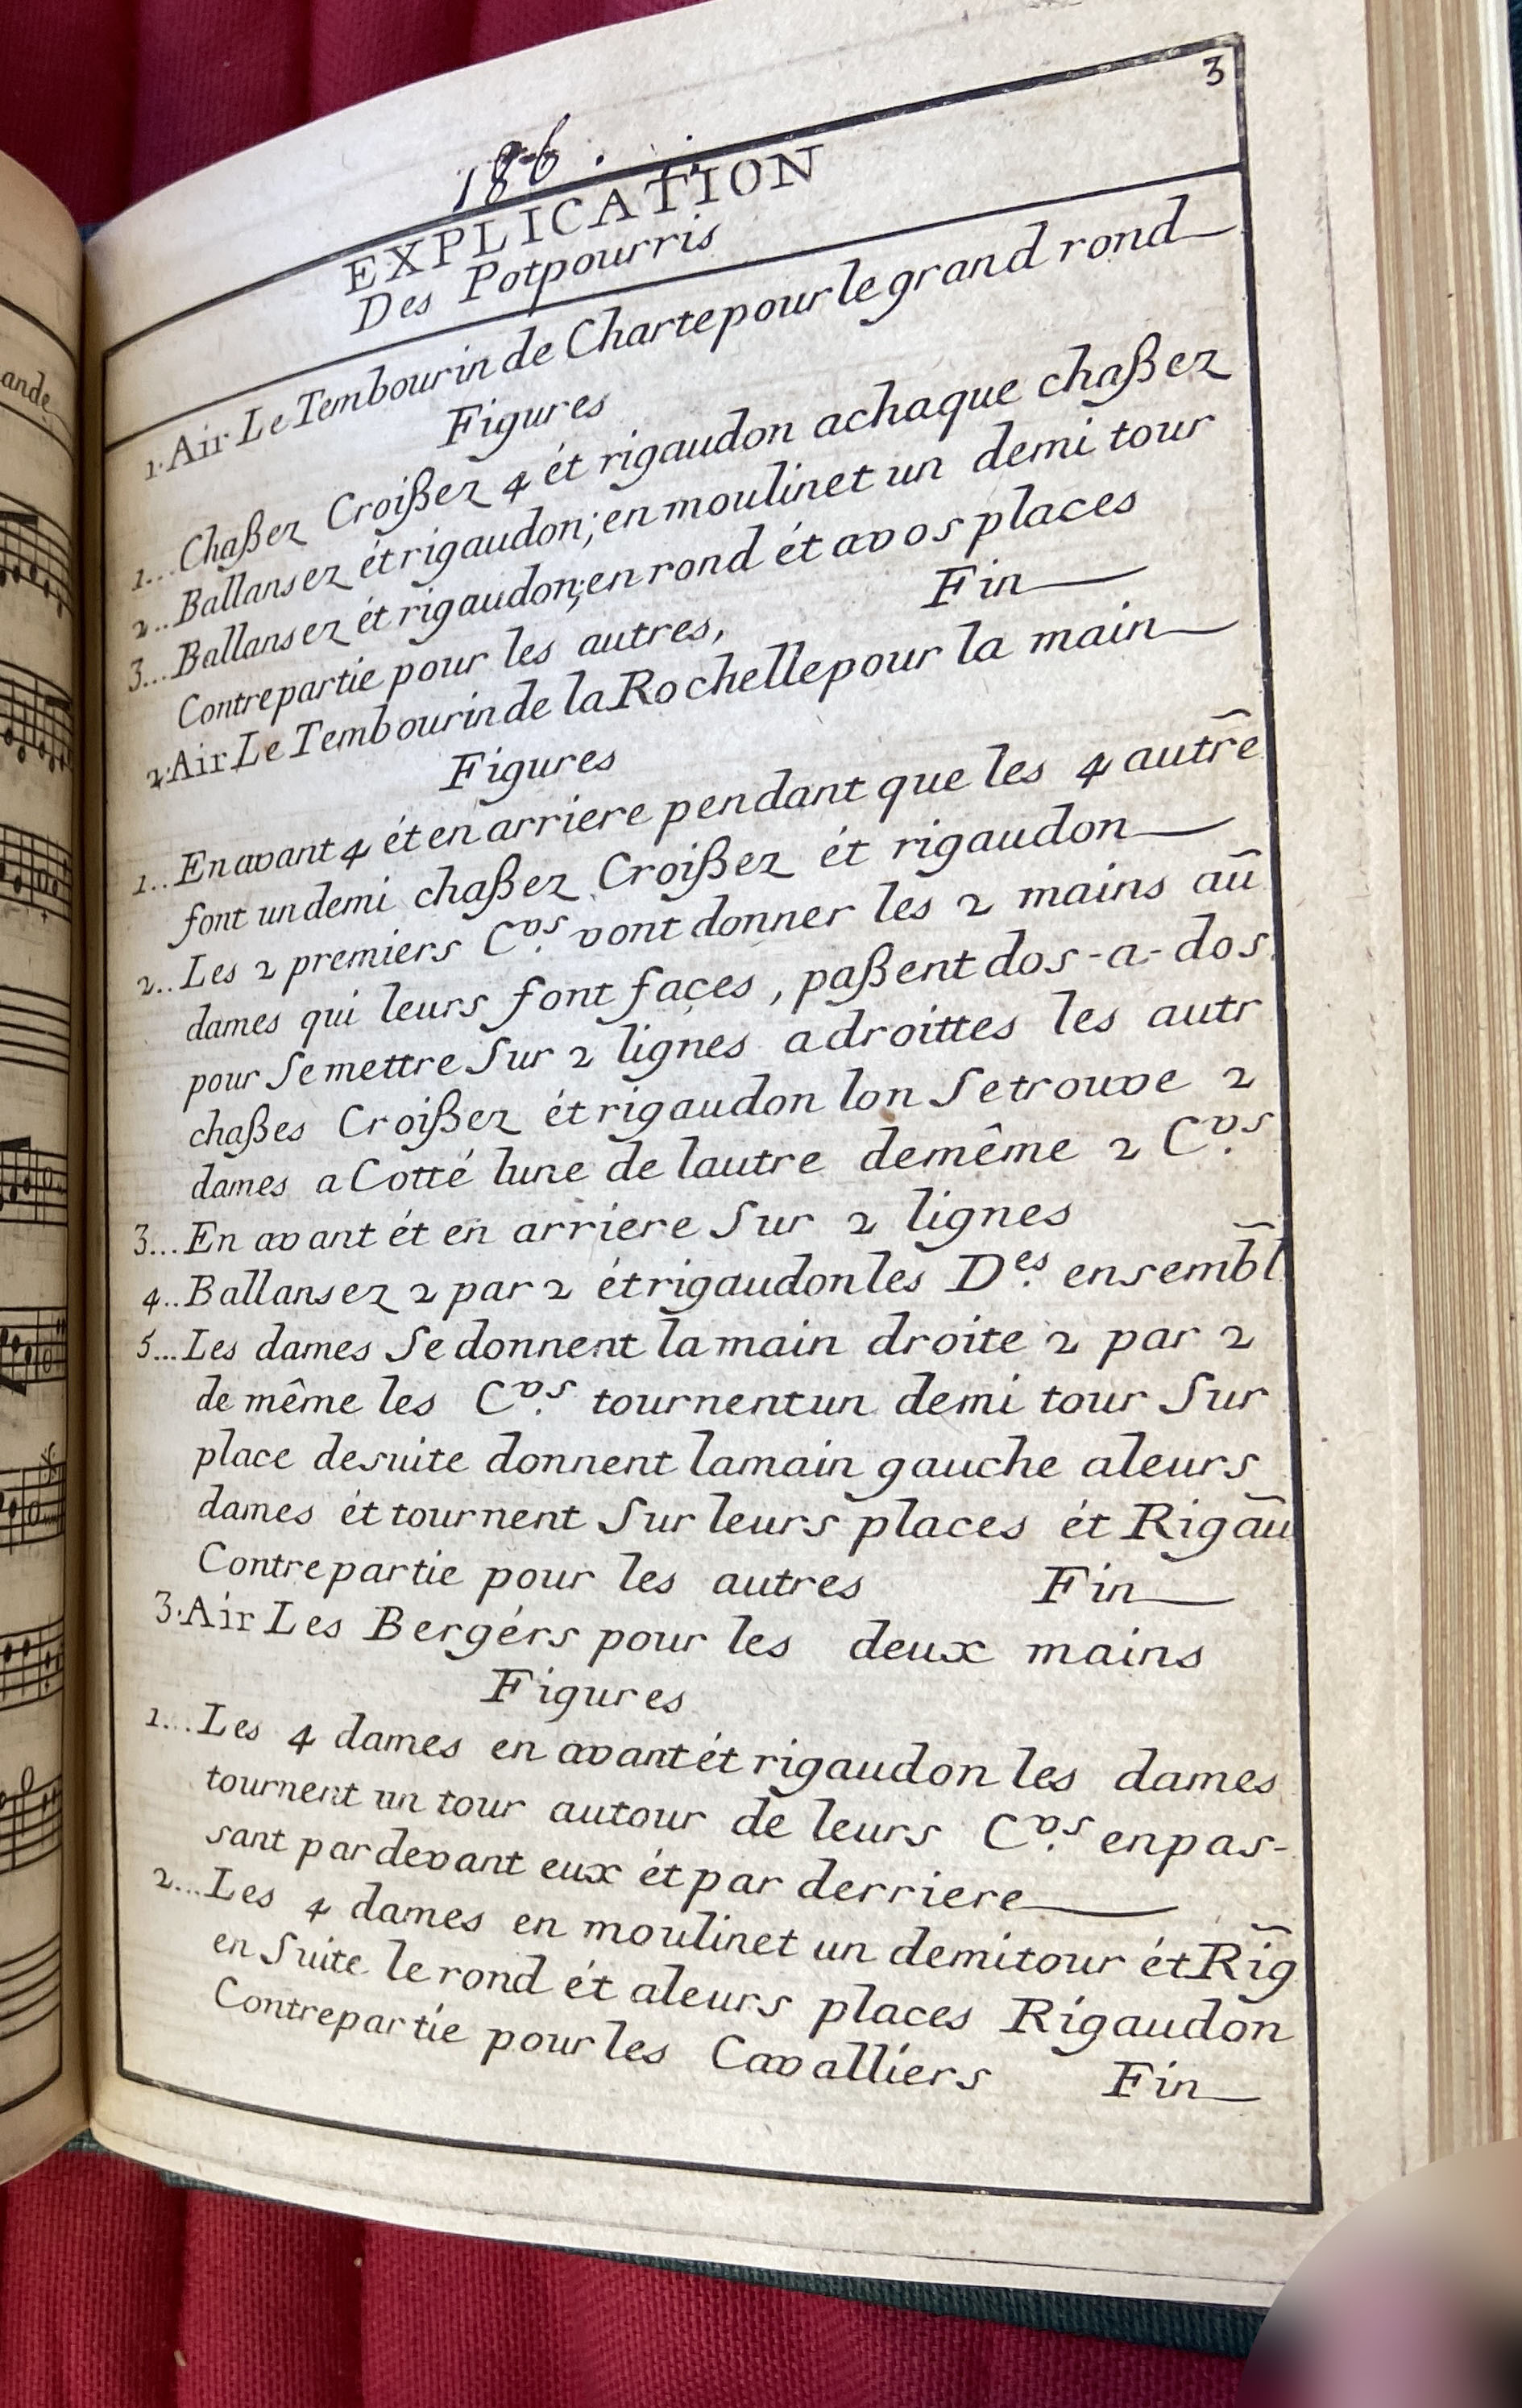 3
186.
EXPLICATION
Des Potpourris
1. Air Le Tembourin de Charte pour le grand rond
Figures
1... Chaßez Croißez 4 ét rigaudon achaque chaßez
2.. Ballansez ét rigaudon; en moulinet un demi tour
3... Ballansez ét rigaudon; en rond ét avos places
Contrepartie pour les autres, Fin
2. Air Le Tembourin de la Rochelle pour la main
Figures
1.. En avant 4 ét en arriere pendant que les 4 autre
font un demi chaßez Croißez ét rigaudon
2.. Les 2 premiers C.vs vont donner les 2 mains au
dames qui leurs font faces, paßent dos-a-dos
pour Se mettre Sur 2 lignes adroittes les autr
chaßes Croißez ét rigaudon lon Se trouve 2
dames a Cotté lune de lautre demême 2 C.vs
3... En avant ét en arriere Sur 2 lignes
4.. Ballansez 2 par 2 ét rigaudon les D.es ensembl
5... Les dames Se donnent la main droite 2 par 2
de même les C.vs tournent un demi tour Sur
place desuite donnent lamain gauche aleurs
dames ét tournent Sur leurs places ét Rigau
Contrepartie pour les autres Fin
3. Air Les Bergérs pour les deux mains
Figures
1... Les 4 dames en avant ét rigaudon les dames
tournent un tour autour de leurs C.vs en pas-
sant par devant eux ét par derriere
2... Les 4 dames en moulinet un demi tour ét Rig
en Suite le rond ét aleurs places Rigaudon
Contrepartie pour les Cavalliers Fin
ande